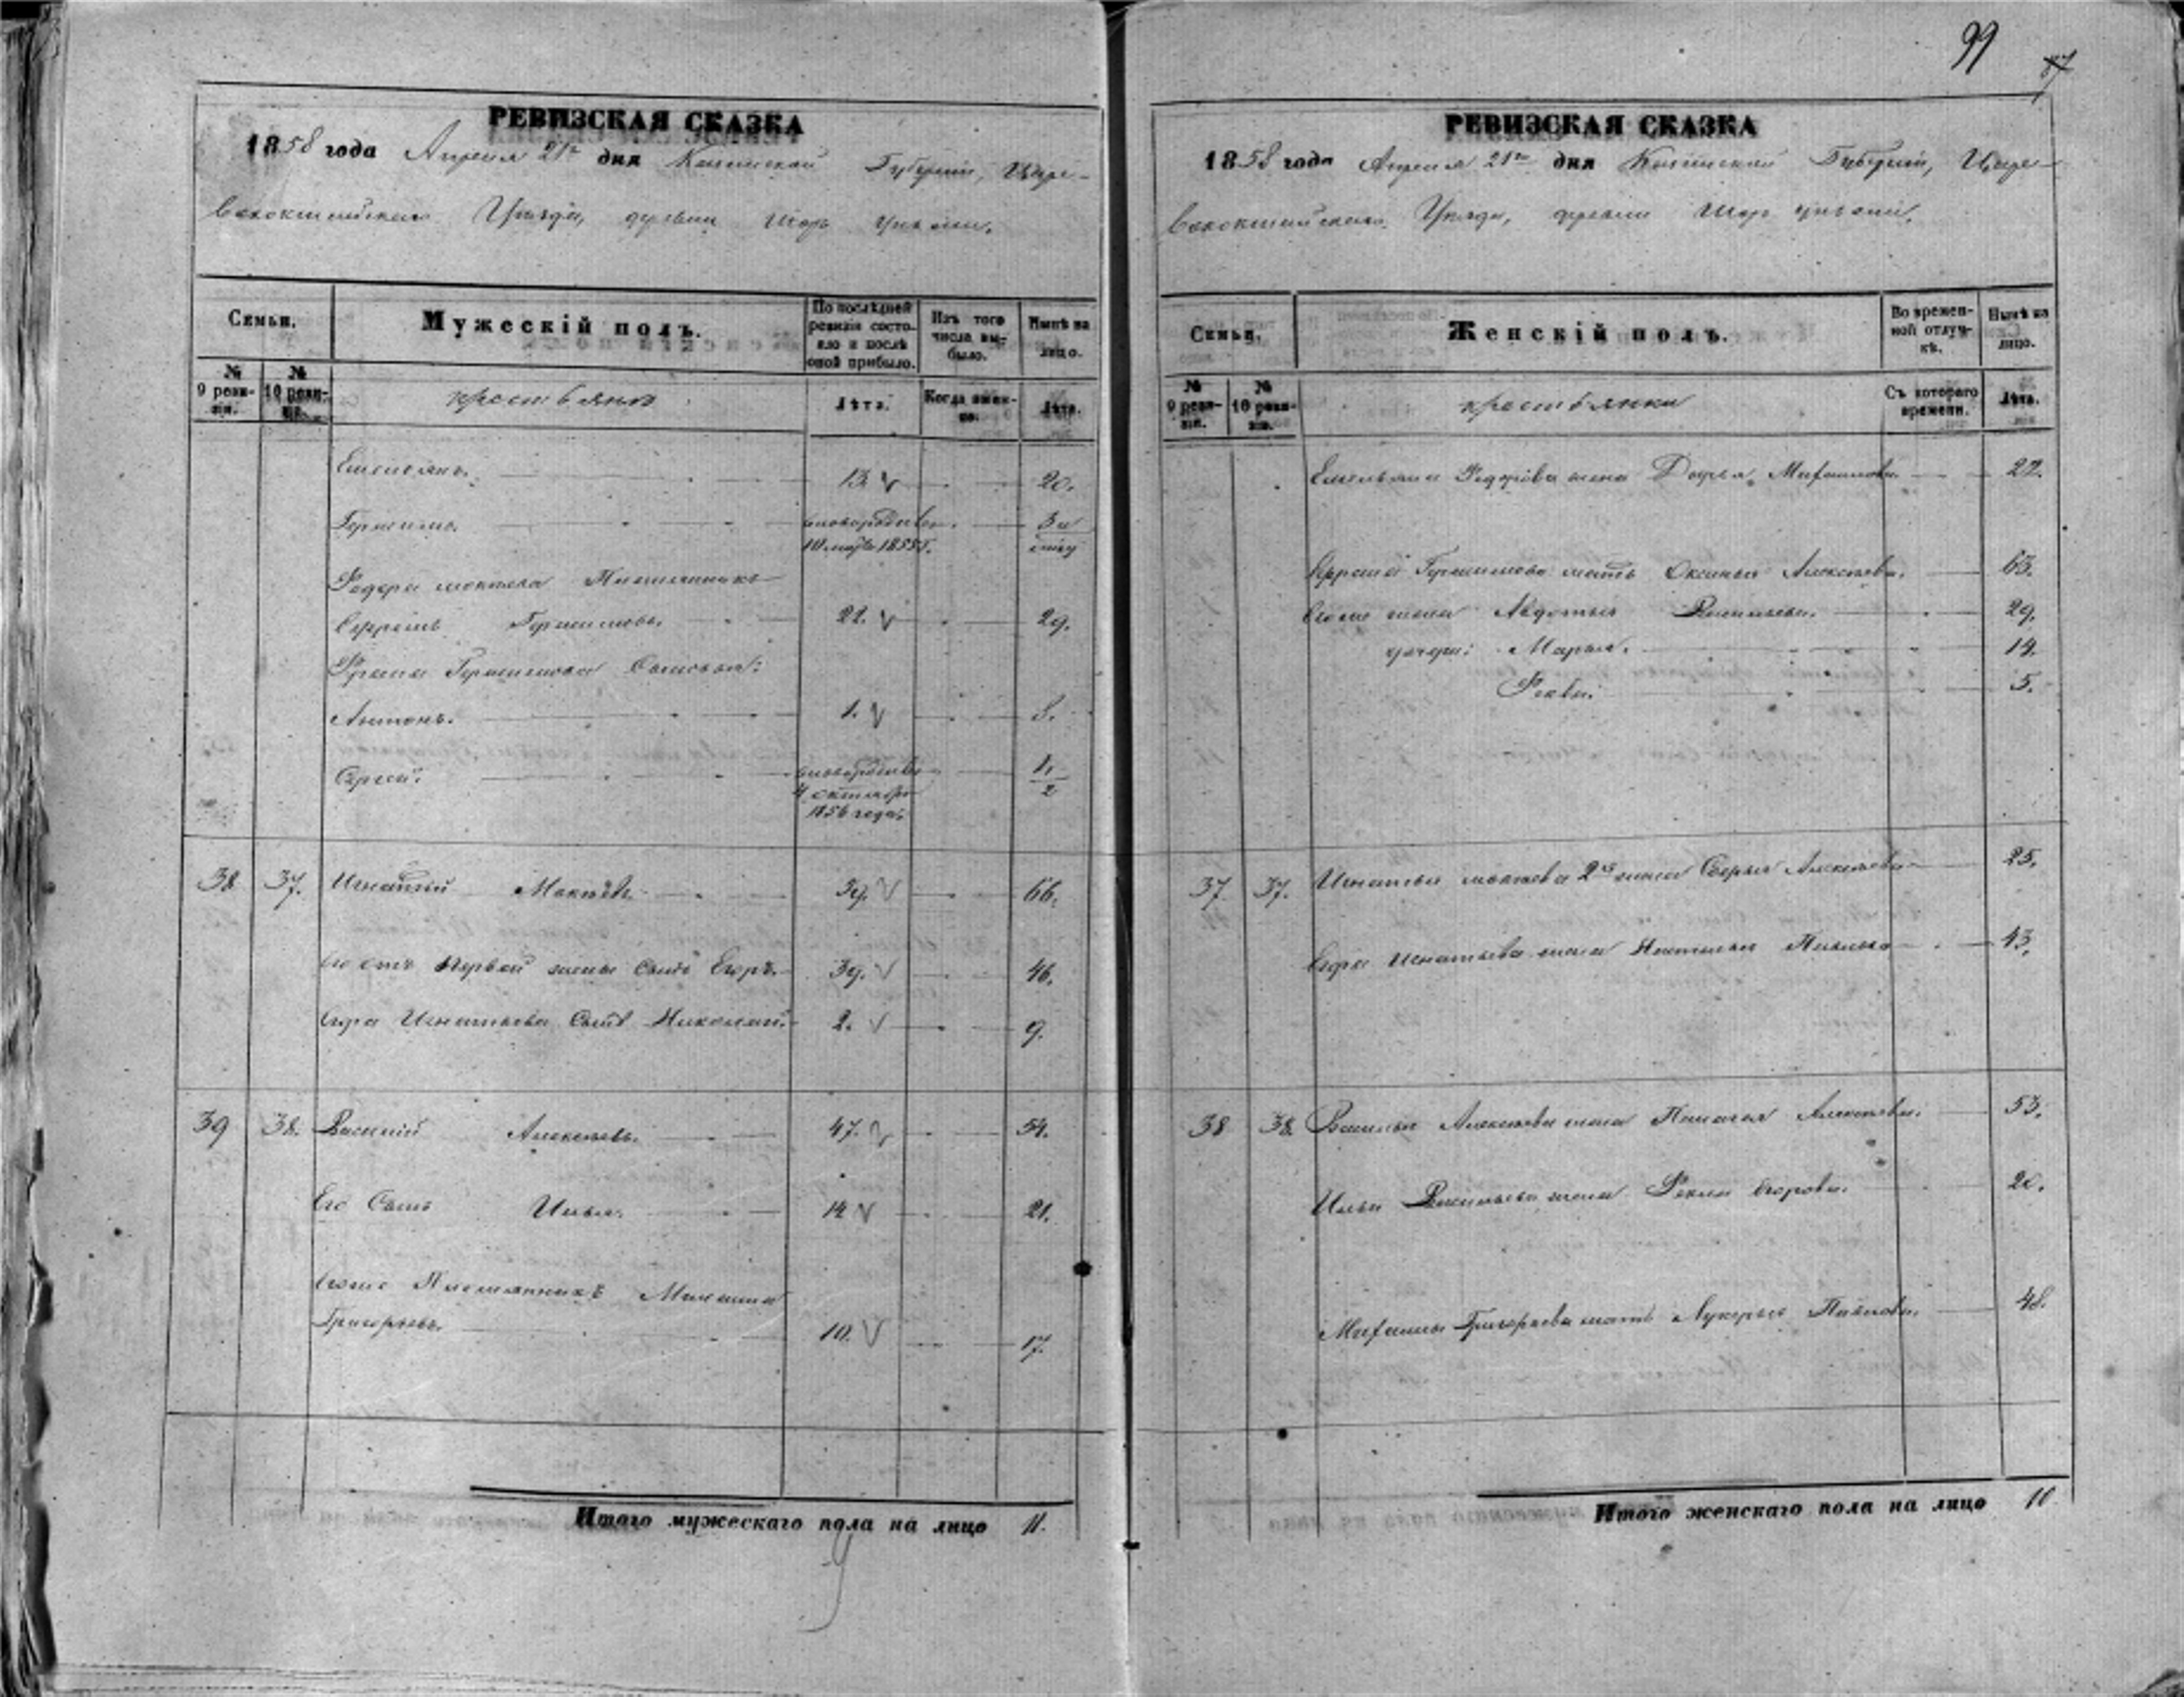 99
87
РЕВИЗСКАЯ СКАЗКА
1858 года Апреля 21го дня Казанской Губернии, Царе-
вококшайскаго Уезда, деревни Шор уньжи.
Семьи.
Мужескій полъ.
По послѣдней ревизіи состояло и послѣ оной прибыло.
Изъ того числа выбыло.
Нынѣ на лицо.
№ 9 ревизіи.
№ 10 ревизіи.
крестьянъ
Лѣта.
Когда именно.
Лѣта.
Емельянъ. 13. 20.
Герасимъ. новорожденъ 3 и
10 1855 г.
Федора Племянникъ
Ефремъ Герасимовъ. 22. 29.
Герасимова Сыновья:
Антонъ. 1. 8.
Сергей. новорожденъ 1 1/2
4 октября
1856 года.
38 37. Игнатий Мокеевъ. 59. 66.
Его отъ первой жены Сынъ Егоръ. 39. 46.
Егора Игнатьева Сынъ Николай. 2. 9.
39 38. Василий Алексеевъ. 47. 54.
Его Сынъ Илья. 14 21.
Его же Племянникъ
Григорьевъ. 10. 17.
Итого мужескаго пола на лицо 11.
РЕВИЗСКАЯ СКАЗКА
1858 года Апреля 21го дня Казанской Губернии, Царе-
вококшайскаго Уезда, деревни Шор уньжи.
Семьи.
Женскій полъ.
Во временной отлучкѣ.
Нынѣ на лицо.
№ 9 ревизіи.
№ 10 ревизіи.
крестьянки
Съ котораго времени.
Лѣта.
Емельяна Федорова жена Дарья 22.
Ефрема Герасимова мать Оксинья Алексеева. 63.
Его же жена Авдотья Васильева. 29.
дочери: Марья. 14.
5.
37 37. Игнатья Мокеева 2я жена Алексеева 25.
Егора Игнатьева жена Настасья Павлова 43.
38 38. Василья Алексеева жена Пелагея Алексеева. 53.
Ильи Васильева жена Фекла Егорова. 20.
Григорьева мать Лукерья Павлова. 48.
Итого женскаго пола на лицо 10